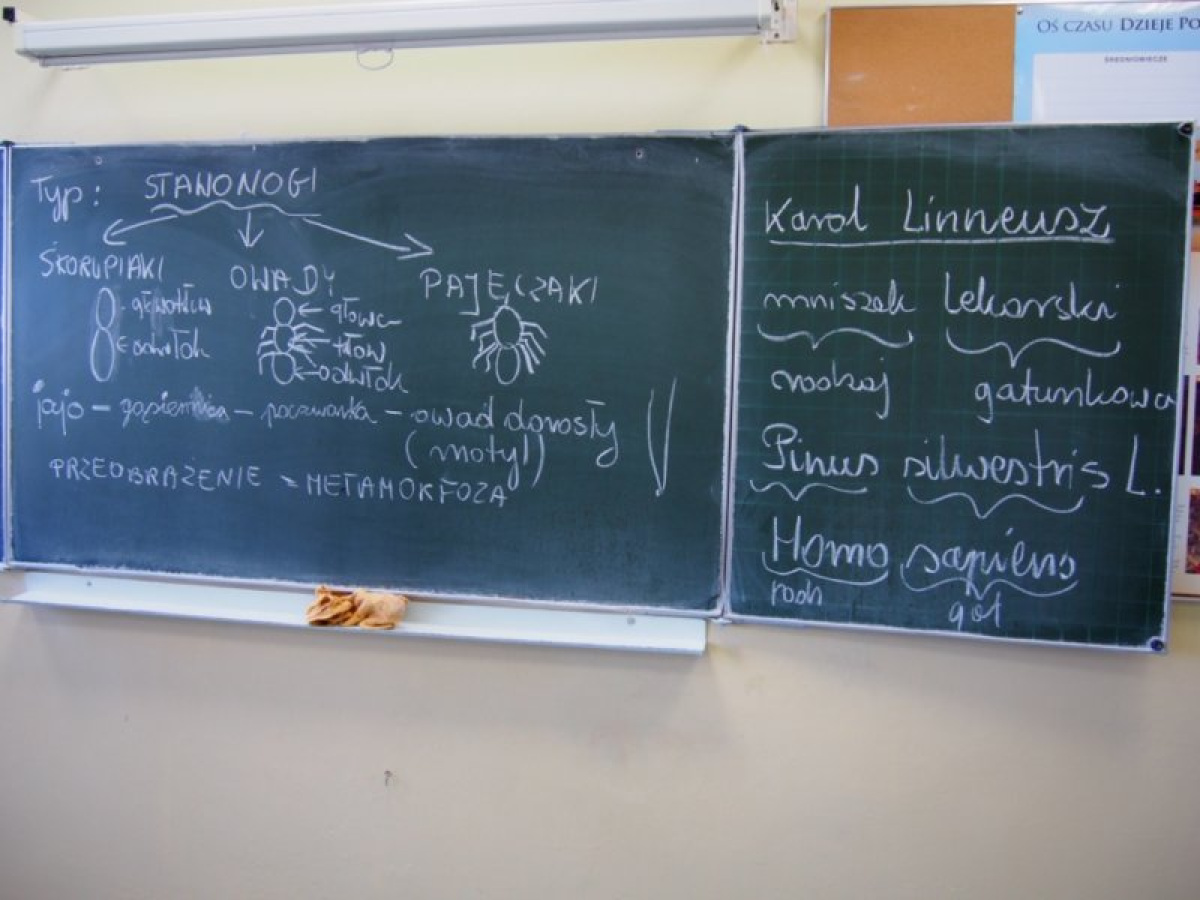 OŚ CZASU DZIEJE PO
ŚREDNIOWIECZE
Typ: STAWONOGI
SKORUPIAKI OWADY PAJĘCZAKI
głowotłów
odwłok
głowa
tłów
odwłok
jajo - gąsienica - poczwarka - owad dorosły
(motyl)
PRZEOBRAŻENIE = METAMORFOZA
Karol Linneusz
mniszek lekarski
rodzaj gatunkowa
Pinus silwestris L.
Homo sapiens
rodz gat